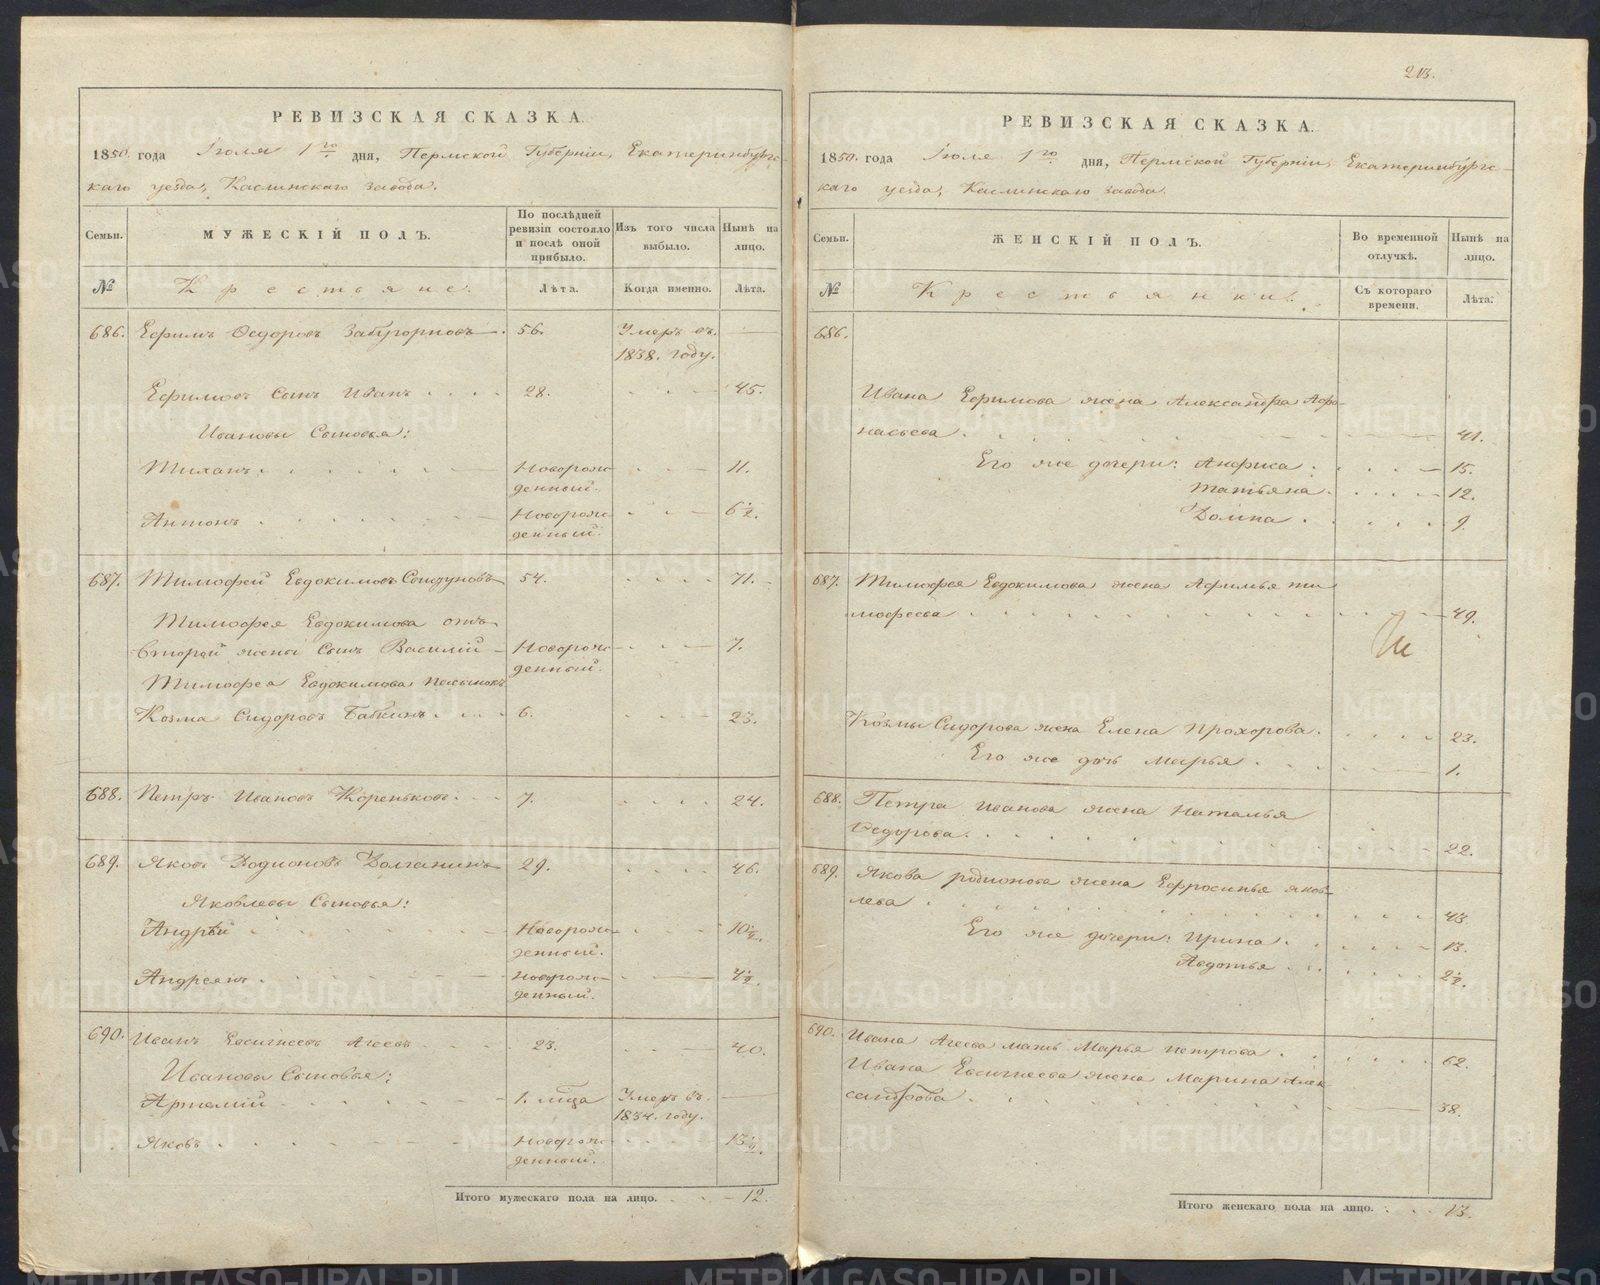 РЕВИЗСКАЯ СКАЗКА.
1850. года Іюля 1го дня, Пермской Губерніи, Екатеринбургс-
каго уезда, Каслинскаго завода.
Семьи.
МУЖЕСКІЙ ПОЛЪ.
По послѣдней ревизіи состояло и послѣ оной прибыло.
Изъ того числа выбыло.
Нынѣ на лицо.
№
Крестьяне.
Лѣта.
Когда именно.
Лѣта.
686. Ефимъ Ѳедоровъ 56. Умеръ въ
1838. году.
Ефимовъ Сынъ Иванъ 28. 45.
Ивановы Сыновья:
Новорож- 11.
денный.
Антонъ Новорож- 6½.
денный.
687. Тимофей Евдокимовъ 54. 71.
Тимофея Евдокимова отъ
второй жены Сынъ Василій Новорож- 7.
денный.
Тимофея Евдокимова пасынокъ
Козма Сидоровъ Бабкинъ 6. 23.
688. Петръ Ивановъ Кореньковъ 7. 24.
689. Яковъ Родионовъ Долганинъ 29. 46.
Яковлевы Сыновья:
Андрей Новорож- 10½.
денный.
Андреянъ Новорож- 4½.
денный.
690. Иванъ Евсигнеевъ Агеевъ 23. 40.
Ивановы Сыновья:
Артемій 1. м-ца Умеръ въ
1834. году.
Яковъ Новорож- 13½.
денный.
Итого мужескаго пола на лицо. 12.
213.
РЕВИЗСКАЯ СКАЗКА.
1850. года Іюля 1го дня, Пермской Губерніи, Екатеринбургс-
каго уезда, Каслинскаго завода.
Семьи.
ЖЕНСКІЙ ПОЛЪ.
Во временной отлучкѣ.
Нынѣ на лицо.
№
Крестьянки.
Съ котораго времени.
Лѣта.
686.
Ивана Ефимова жена Александра Афо-
насьева 41.
Его же дочери: Анфиса 15.
Татьяна 12.
Домна 9.
687. Тимофея Евдокимова жена Афимья ти-
мофеева 49.
Козмы Сидорова жена Елена Прохорова 23.
Его же дочь Марья 1.
688. Петра Иванова жена Наталья
Ѳедорова 22.
689. Якова родионова жена Ефросинья яков-
лева 43.
Его же дочери: Ирина 13.
Авдотья 2½.
690. Ивана Агеева мать Марья петрова 62.
Ивана Евсигнеева жена Марина Алек-
сандрова 38.
Итого женскаго пола на лицо. 13.
METRIKI.GASO-URAL.RU